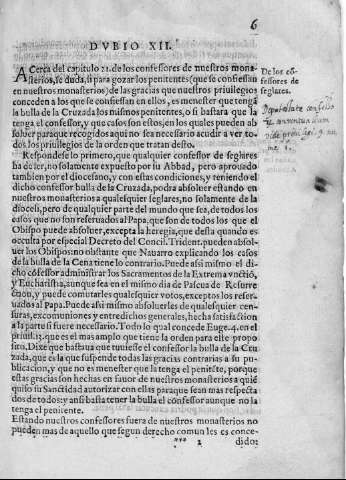 6
DVBIO XII.
ACerca del capitulo 21. de los confessores de nuestros mona-
sterios, se duda, si para gozar los penitentes (que se confiessan
en nuestros monasterios) de las gracias que nuestros priuilegios
conceden a los que se confiessan en ellos, es menester que tengã
la bulla de la Cruzada los mismos penitentes, o si bastara que la
tenga el confessor, y que casos son estos, en los quales pueden ab
soluer paraque recogidos aqui no sea necessario acudir a ver to-
dos los priuilegios de la orden que tratan desto.
Respondese lo primero, que qualquier confessor de seglares
ha de ser, no solamente expuesto por su Abbad, pero aprouado
tambien por el diocesano, y con estas condiciones, y teniendo el
dicho confessor bulla de la Cruzada, podra absoluer estando en
nuestros monasterios a qualesquier seglares, no solamente de la
diocesi, pero de qualquier parte del mundo que sea, de todos los
casos que no son referuados al Papa. que son de todos los que el
Obispo puede absoluer, excepta la heregia, que desta quando es
occulta por especial Decreto del Concil. Trident. pueden absol-
uer los Obispos: no obstante que Nauarro explicando los casos
de la bulla de la Cena tiene lo contrario. Puede assi mismo el di-
cho cõfessor administrar los Sacramentos de la Extrema vnctiõ,
y Eucharistia, aunque sea en el mismo dia de Pascua de Resurre
ction, y puede comutarles qualesquier votos, exceptos los refer-
uados al Papa. Puede assi mismo absoluerles de qualesquier cen-
suras, excomuniones y entredichos generales, hecha satisfaction
a la parte si fuere necessario. Todo lo qual concede Euge. 4. en el
priuil. 13. que es el mas amplo que tiene la orden para este propo
sito. Dixe que bastaua que tuuiesse el confessor la bulla de la Cru
zada, que es la que suspende todas las gracias contrarias a su pu-
blicacion, y que no es menester que la tenga el penitẽte, porque
estas gracias son hechas en fauor de nuestros monasterios a quiẽ
quiso su Sanctidad autorizar con ellas paraque sean mas respecta
dos de todos: y ansi basta tener la bulla el confessor aunque no la
tenga el penitente.
Estando nuestros confessores fuera de nuestros monasterios no
pueden mas de aquello que segun derecho comun les es conce-
2 dido:
De los cõ-
fessores de
seglares.